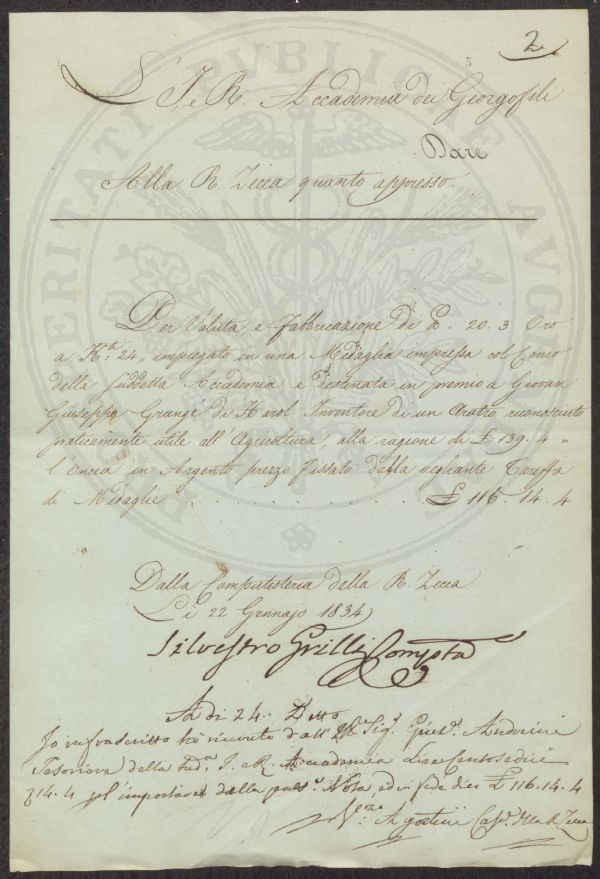 2
L' I. e R. Accademia dei Georgofili
Dare
Alla R. Zecca quanto appresso.
Per Valuta e fabbricazione di D. 20. 3 Oro
a K.ti 24 „ impiegato in una Medaglia impressa col Conio
della suddetta Accademia, e destinata in premio a Giovan
Giuseppe Grangé di Harol Inventore di un Aratro riconosciuto
praticamente utile all'Agricoltura, alla ragione di £ 139. 4 „
l'Oncia in Argento prezzo fissato dalla vegliante Tariffa
di Medaglie . . . . . . . . . . £ 116. 14. 4
Dalla Computisteria della R. Zecca
Li 22 Gennajo 1834
Silvestro Grilli Compta
Adì 24. Detto
Io infrascritto ho ricevuto dall' Sig.r Andreini
Tesoriere della sud.a I. e R. Accademia Lire Centosedici
14. 4 per importare della pres.e Nota, ed in fede dico £ 116. 14. 4
Agostini Cass.e della R. Zecca
PVBLICAE